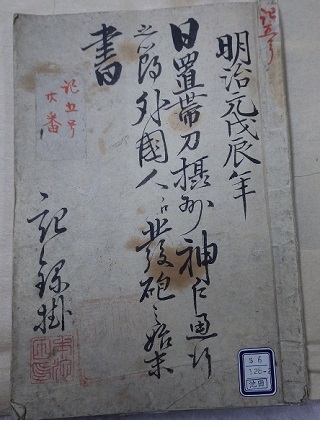 明治元戊辰年
日置帯刀摂州神戸通行
之節外國人江発砲之始末
書
記録掛
記五号
六番
記五号
S6
126-2
池田